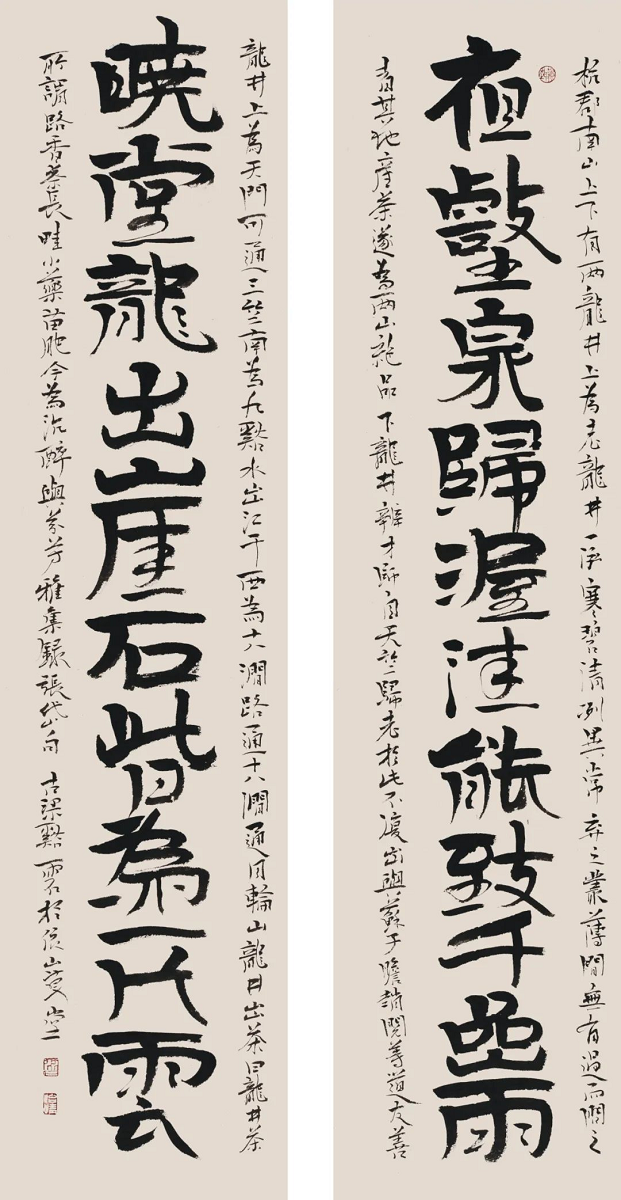 杭郡南山上下有兩龍井上為老龍井一泓寒碧清冽異常棄之叢薄間無有過而問之
夜壑泉歸渥洼能致千嵒雨
者其地產茶遂為兩山品下龍井辯才師自天竺歸老於此不復出與蘇子瞻趙閱等道友善
龍井上為天門可通三竺南為九谿水出江干西為十八澗路通十八澗通月輪山龍井出茶曰龍井茶
曉堂龍出崖石皆為一片雲
所謂路香茶長畦小藥苗肥今為沉醉與芬芳雅集錄張岱句 古梁谿石於山堂